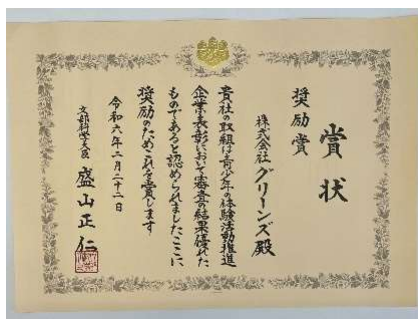 賞状
奨励賞
株式会社グリーンズ殿
貴社の取組は青少年の体験活動推進
企業表彰において審査の結果優れた
ものであると認められましたここに
奨励のためこれを賞します
令和六年二月二十二日
文部科学大臣 盛山正仁